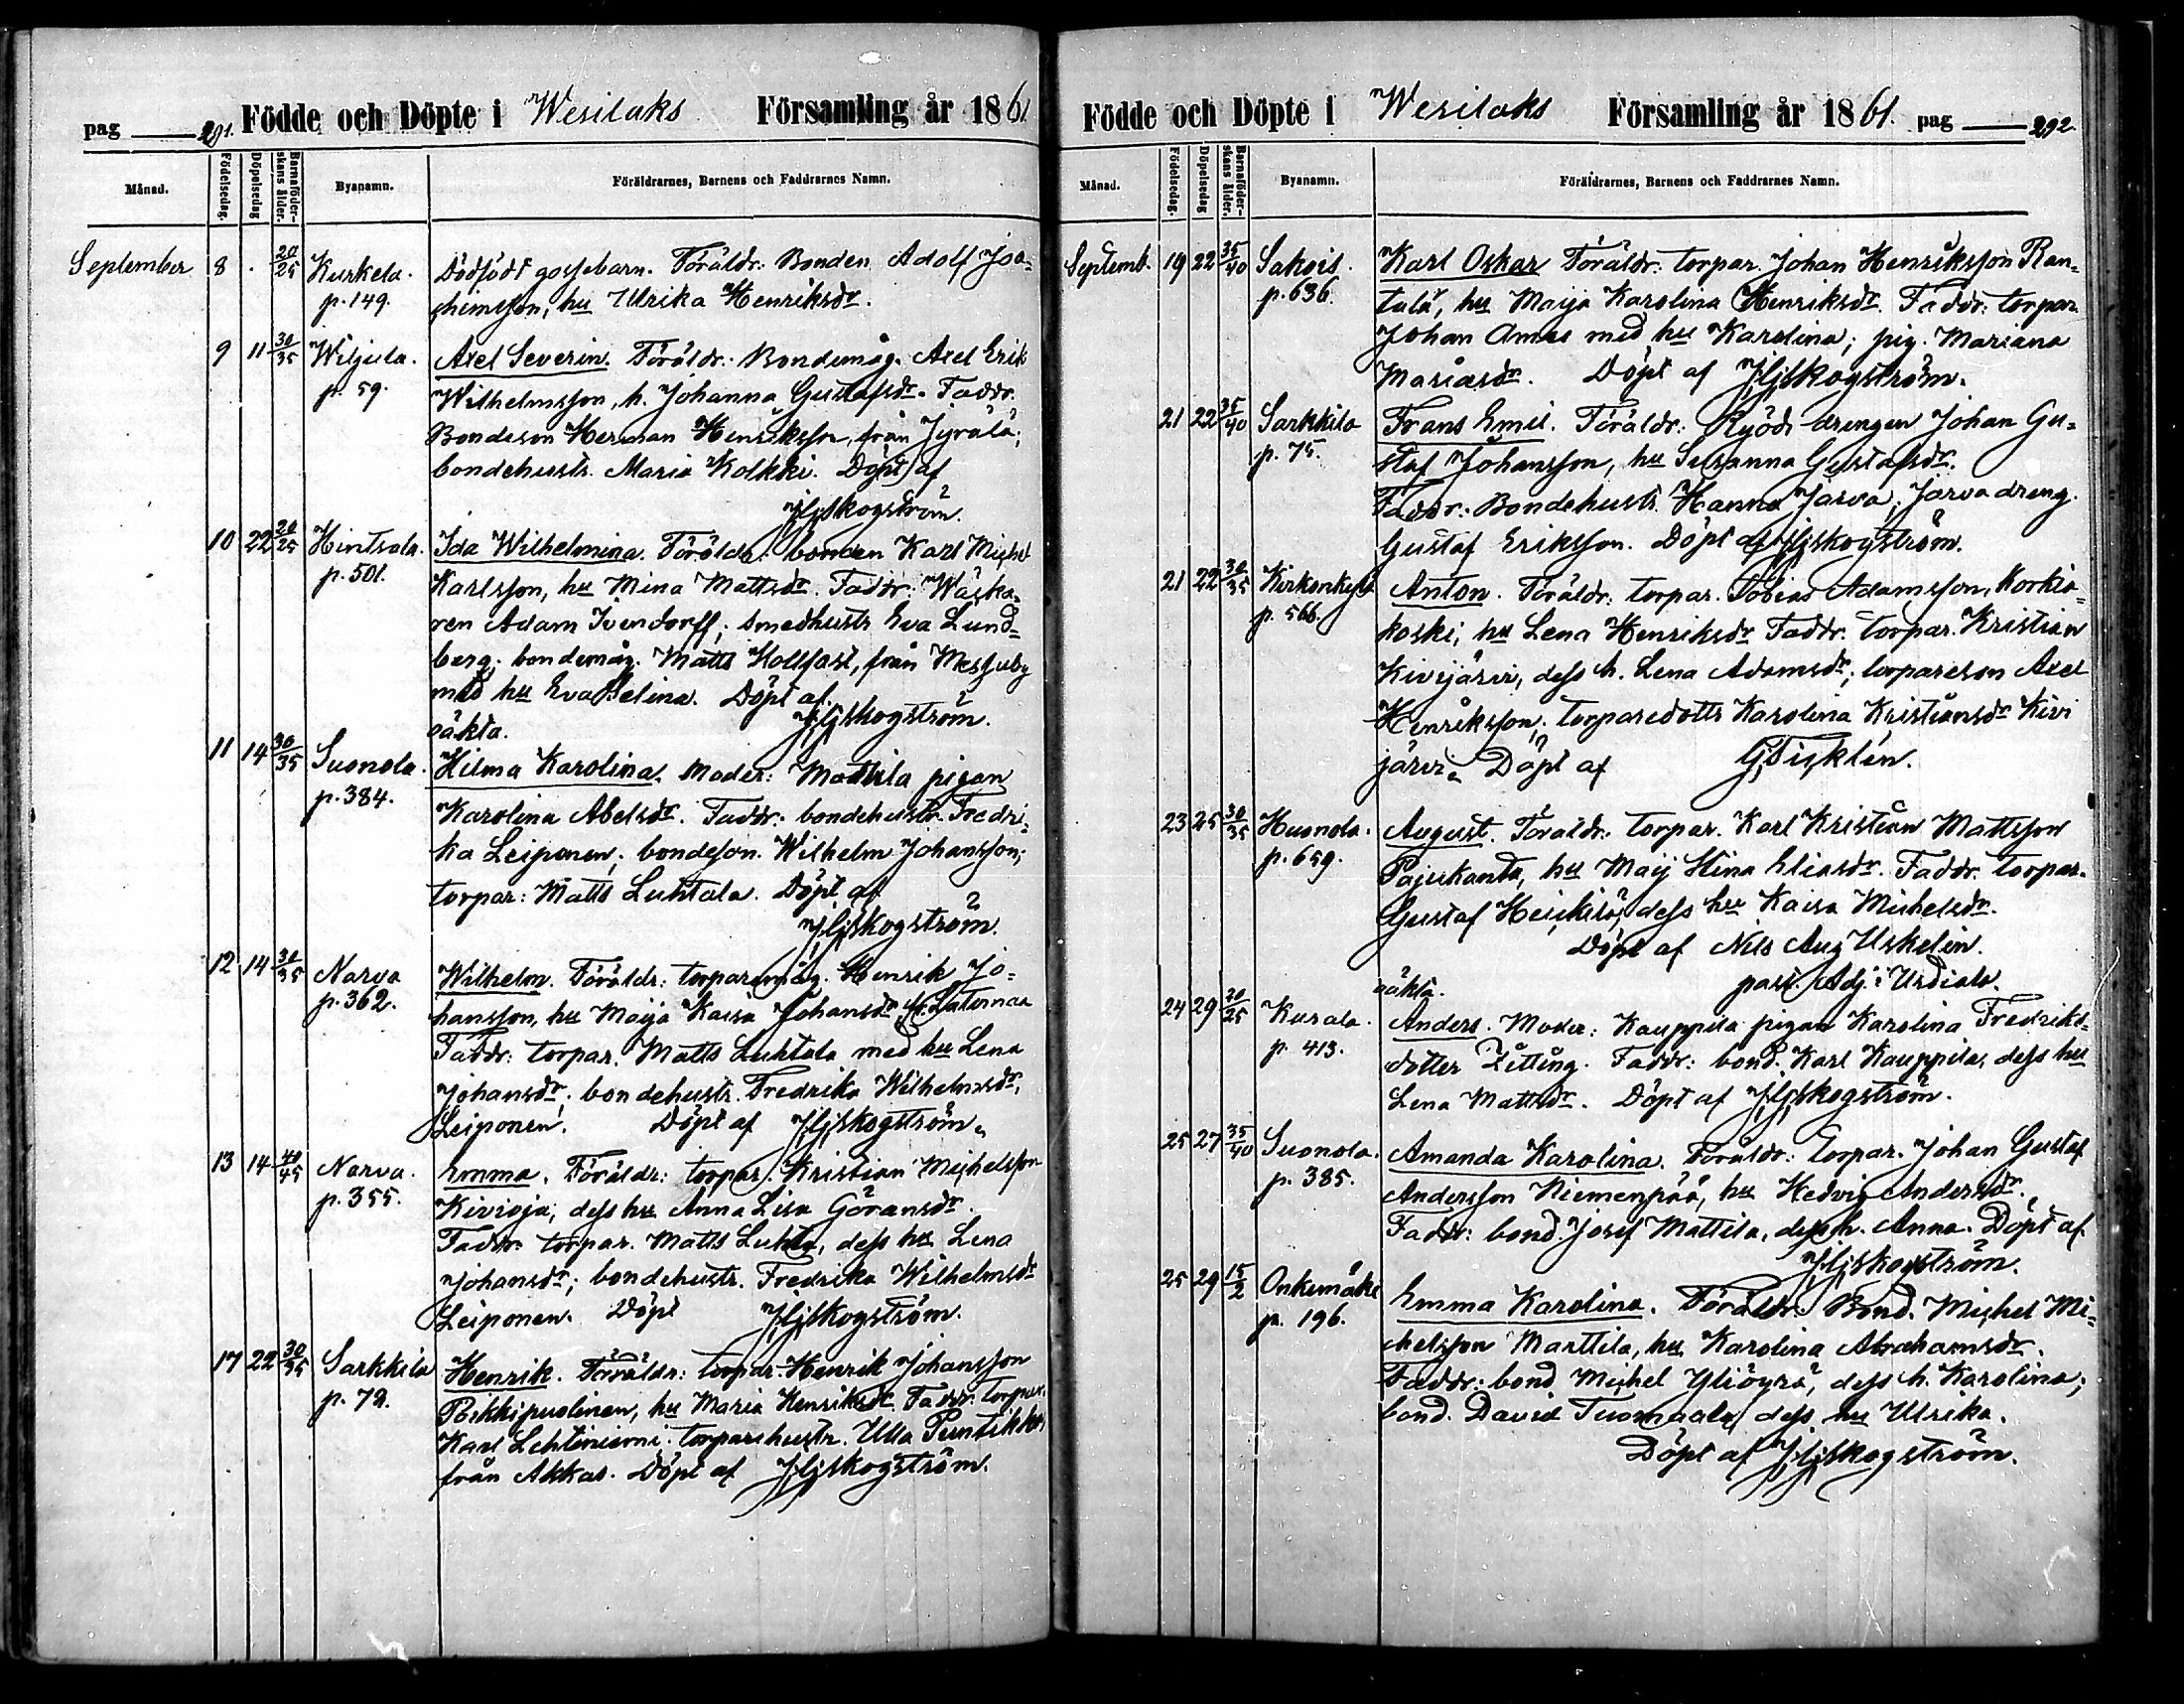 pag 291. Födde och Döpte i Wesilaks Församling år 1861
Månad. Födelsedag. Döpelsedag Barnaföderskans ålder. Byanamn. Föräldrarnes, Barnens och Faddrarnes Namn.
September 8 . 20/25 Kurkela. p. 149. Dödfödt gossebarn. Föräldr: Bonden Adolf Joa-
chimsson, hu Ulrika Henriksdr.
9 11 30/35 Wiljula. p. 59. Axel Severin. Föräldr: Bondemåg. Axel Erik
Wilhelmsson, h. Johanna Gustafsdr. Faddr.
Bondeson Herman Henriksson, från Jyrälä;
bondehustr. Maria Kolkki. Döpt af
Skogström.
10 22 20/25 Hintsala. p. 501. Ida Wilhelmina. Föräldr: bonden Karl Michel
Karlsson, hu Mina Mattsdr. Faddr: Waska-
ren Adam Ivendorff; smedhustr Eva Lund-
berg; bondemåg. Matts Hollfast, från Mesjuby
med hu Eva Helina. Döpt af
Skogström.
oäkta.
11 14 30/35 Suonola. p. 384. Hilma Karolina. Moder: Mattila pigan
Karolina Abelsdr. Faddr: bondehustr. Fredri-
ka Leiponen; bondeson. Wilhelm Johansson;
torpar: Matts Luhtala. Döpt af
Skogström.
12 14 30/35 Narva p. 362. Wilhelm. Föräldr: torparemåg. Henrik Jo-
hansson, hu Maija Kaisa Johansdr,
Faddr: torpar. Matts Luhtala med hu Lena
Johansdr; bondehustr. Fredrika Wilhelmsdr,
Leiponen. Döpt af Skogström.
13 14 40/45 Narva. p. 355. Emma. Föräldr: torpar. Kristian Michelsson
Kivioja, dess hu Anna Lisa Göransdr.
Faddr: torpar. Matts Luhta, dess hu Lena
Johansdr; bondehustr. Fredrika Wilhelmsdr
Leiponen. Döpt Skogström.
17 22 30/35 Sarkkila p. 72. Henrik. Föräldr: torpar. Henrik Johansson
Pikkipuolinen, hu Maria Henriksdr. Faddr: torpar.
Karl Lehtiniemi; torparehustr. Ulla Puntikko,
från Akkas. Döpt af Skogström.
Födde och Döpte i Wesilaks Församling år 1861. pag 292.
Månad. Födelsedag. Döpelsedag Barnaföderskans ålder. Byanamn. Föräldrarnes, Barnens och Faddrarnes Namn.
Septemb. 19 22 35/40 Sakois. p. 636. Karl Oskar Föräldr: torpar. Johan Henriksson Ran-
tala, hu Maija Karolina Henriksdr. Faddr: torpar.
Johan med hu Karolina; pig. Mariana
Mariasdr. Döpt af Skogström.
21 22 35/40 Sarkkila p. 75. Frans Emil. Föräldr: drengen Johan Gu-
staf Johansson, hu Susanna Gustafsdr.
Faddr: Bondehustr. Hanna Jarva; Jarva dreng.
Gustaf Eriksson. Döpt af Skogström.
21 22 30/35 Kirkonkylä p. 566. Anton. Föräldr: torpar. Tobias Adamsson, Korkia-
koski; hu Lena Henriksdr Faddr: torpar. Kristian
Kivijärvi, dess h. Lena Adamsdr; torpareson Axel
Henriksson; torparedottr Karolina Kristiansdr Kivi
järvi. Döpt af
23 25 30/35 Huonola. p. 659. August. Föräldr: torpar. Karl Kristian Mattsson
Pajukanta, hu Maij Stina Eliasdr. Faddr. torpar.
Gustaf Heickilä, dess hu Kaisa Michelsdr.
Döpt af Nils Aug Uskelin.
past. Adj. i Urdiala.
oäkta.
24 29 20/25 Kurala. p. 413. Anders. Moder: Kauppila pigan Karolina Fredriks-
dotter Zitting. Faddr: bond. Karl Kauppila, dess hu
Lena Mattsdr. Döpt af Skogström.
25 27 35/40 Suonola. p. 385. Amanda Karolina. Föräldr: torpar. Johan Gustaf
Andersson Niemenpää, hu Hedvig Andersdr.
Faddr: bond. Josef Mattila, dess h. Anna. Döpt af
Skogström.
25 29 15/2 Onkemäki p. 196. Emma Karolina. Föräldr: Bond. Michel Mi-
chelsson Marttila, hu Karolina Abrahamsdr.
Faddr: bond Michel Yliöyrä, dess h. Karolina;
bond. David Tuomaala, dess hu Ulrika.
Döpt af Skogström.